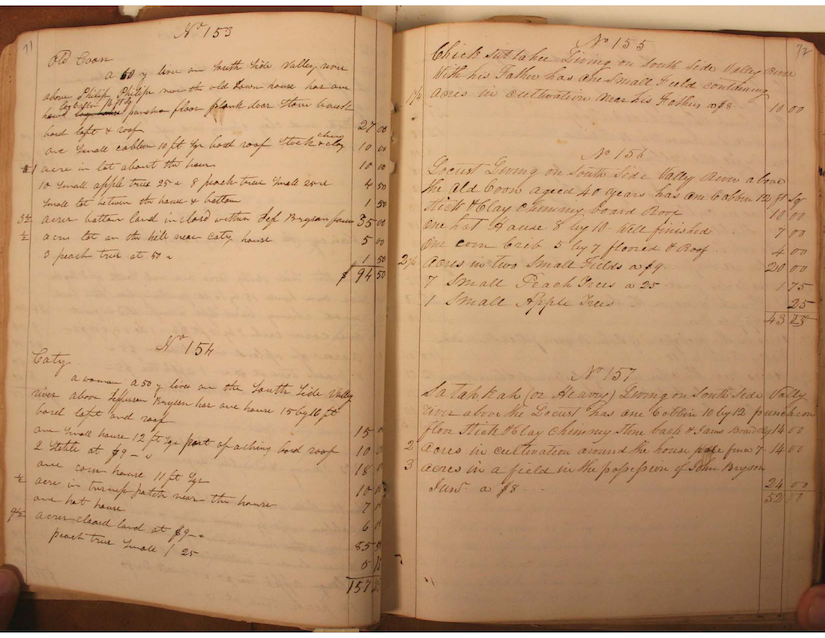 71
No 153
Old Coon
a 60 y live on South Side Valley river
above Philip Philips near the old Town house has one
log Cabin 16 ft Sqr
puncheon floor plank door Stone back
bord loft & roof 27 00
one Small cabben 10 ft Sqr bord roof Stick & clay 10 00
chimy
1 acre in lot about the house 10 00
10 Small apple tree 25 c 8 peach trees Small 25 c 4 50
Small lot betwen the house & bottom 1 50
3½ acres bottom land in closd within Jef Brysan farm 35 00
½ acre lot on the hill near Caty house 5 00
3 peach tree at 50 c 1 50
$ 94 50
No 154
Caty
a woman a 50 y lives on the South Side Valley
river above Jefferson Brysen has one house 15 by 16 ft
bord loft and roof 15 0
one Small house 12 ft Sqr bord roof 10 0
2 at $9 18 0
one corn house 11 ft Sqr 10
½ acre in turnip patch near the house 7 0
one hot house 6 0
9½ acres cleard land at $9 85
peach tree Small / 25
157
72
No 155
Chick sut tahee Living on South Side Valley River
With his Father has one Small Field containing
1¼ acres in cultivation near his Father a $8 10 00
No 156
Locust Living on South Side Valley River above
the Old Coon aged 40 years has one Cabbin 12 ft Sq
Stick & Clay Chimmy board Roof 10 00
one hot House 8 by 10 Well finished 7 00
one corn crib 5 by 7 floored & Roof 4 00
acres in two Small Fields a $9 20 00
7 Small Peach Trees a 25 1 75
1 Small Apple Tree 25
43 25
No 157
Sa tah kah (or Heavy) Living on South Side Valley
River above the Locust has one Cabbin 10 by 12 puncheon
floor Stick & Clay Chimmy Stone back & Jams board Roof 14 00
2 acres in cultivation around the house fence 7 14 00
3 acres in a field in the possession of John Bryson
Junr a $8 24 00
52 00